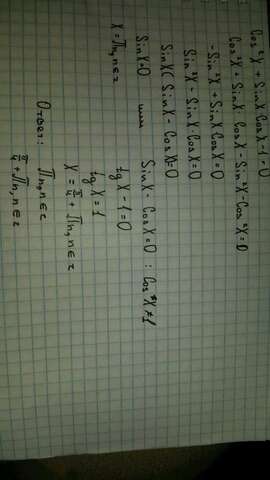 Cos²X + SinX CosX - 1 = 0
Cos²X + SinX CosX - Sin²X - Cos²X = 0
- Sin²X + SinX CosX = 0
Sin²X - SinX · CosX = 0
SinX ( SinX - CosX) = 0
SinX = 0 или SinX - CosX = 0 : CosX ≠ 1
X = Πn, n ∈ z tg X - 1 = 0
tg X = 1
X = π/4 + Πn, n ∈ z
Ответ: Πn, n ∈ z
π/4 + Πn, n ∈ z